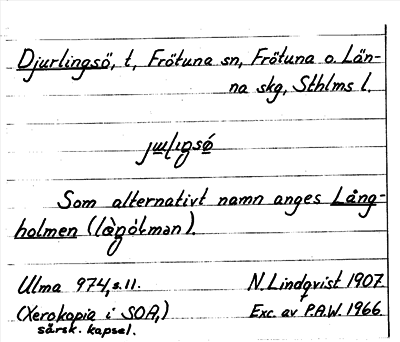 Djurlingsö, t, Frötuna sn, Frötuna o. Län-
na skg, Sthlms l.
Som alternativt namn anges Lång-
holmen (làgólman).
Ulma 974, s. 11. N. Lindqvist 1907
(Xerokopia i SOA,) Exc. av P.A.W. 1966
särsk. kapsel.